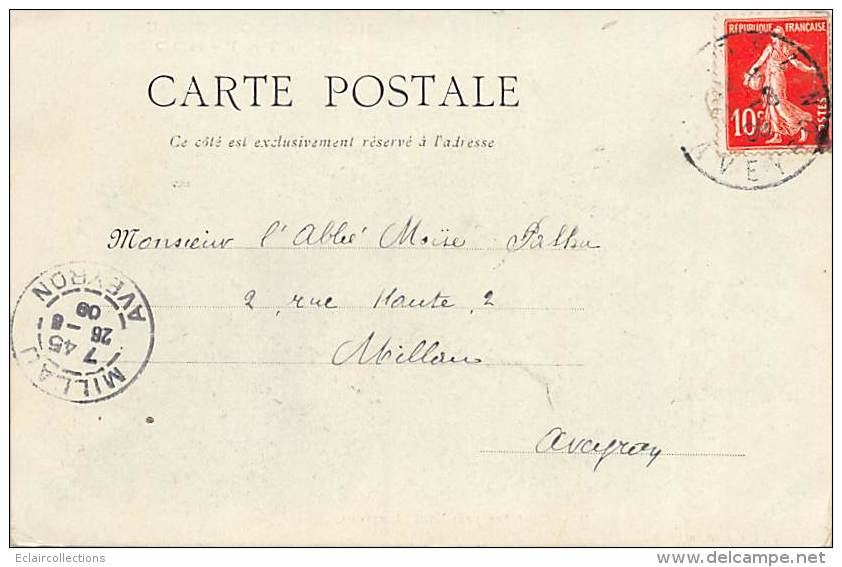 RÉPUBLIQUE FRANÇAISE
10c POSTES
AVEY
CARTE POSTALE
Ce côté est exclusivement réservé à l'adresse
Monsieur l'Abbé Moïse
2, rue Haute, 2
Millau
Aveyron
MILLAU
7 45
26 - 6
09
AVEYRON
Eclaircollections
delcampe.net